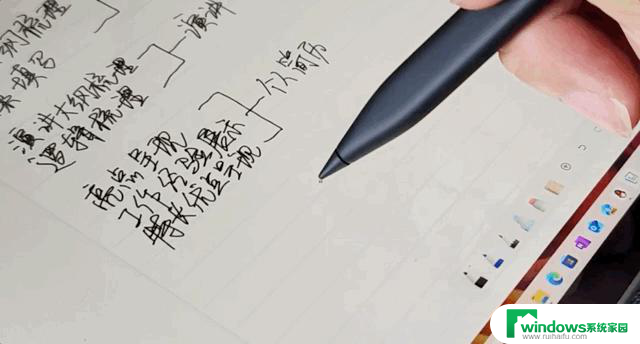 纲梳理
填写
演讲
演讲大纲梳理
逻辑梳理
个人简历
亮点呈现
工作经验展示
特长优点呈现
windows系统家园
www.ruihaifu.com